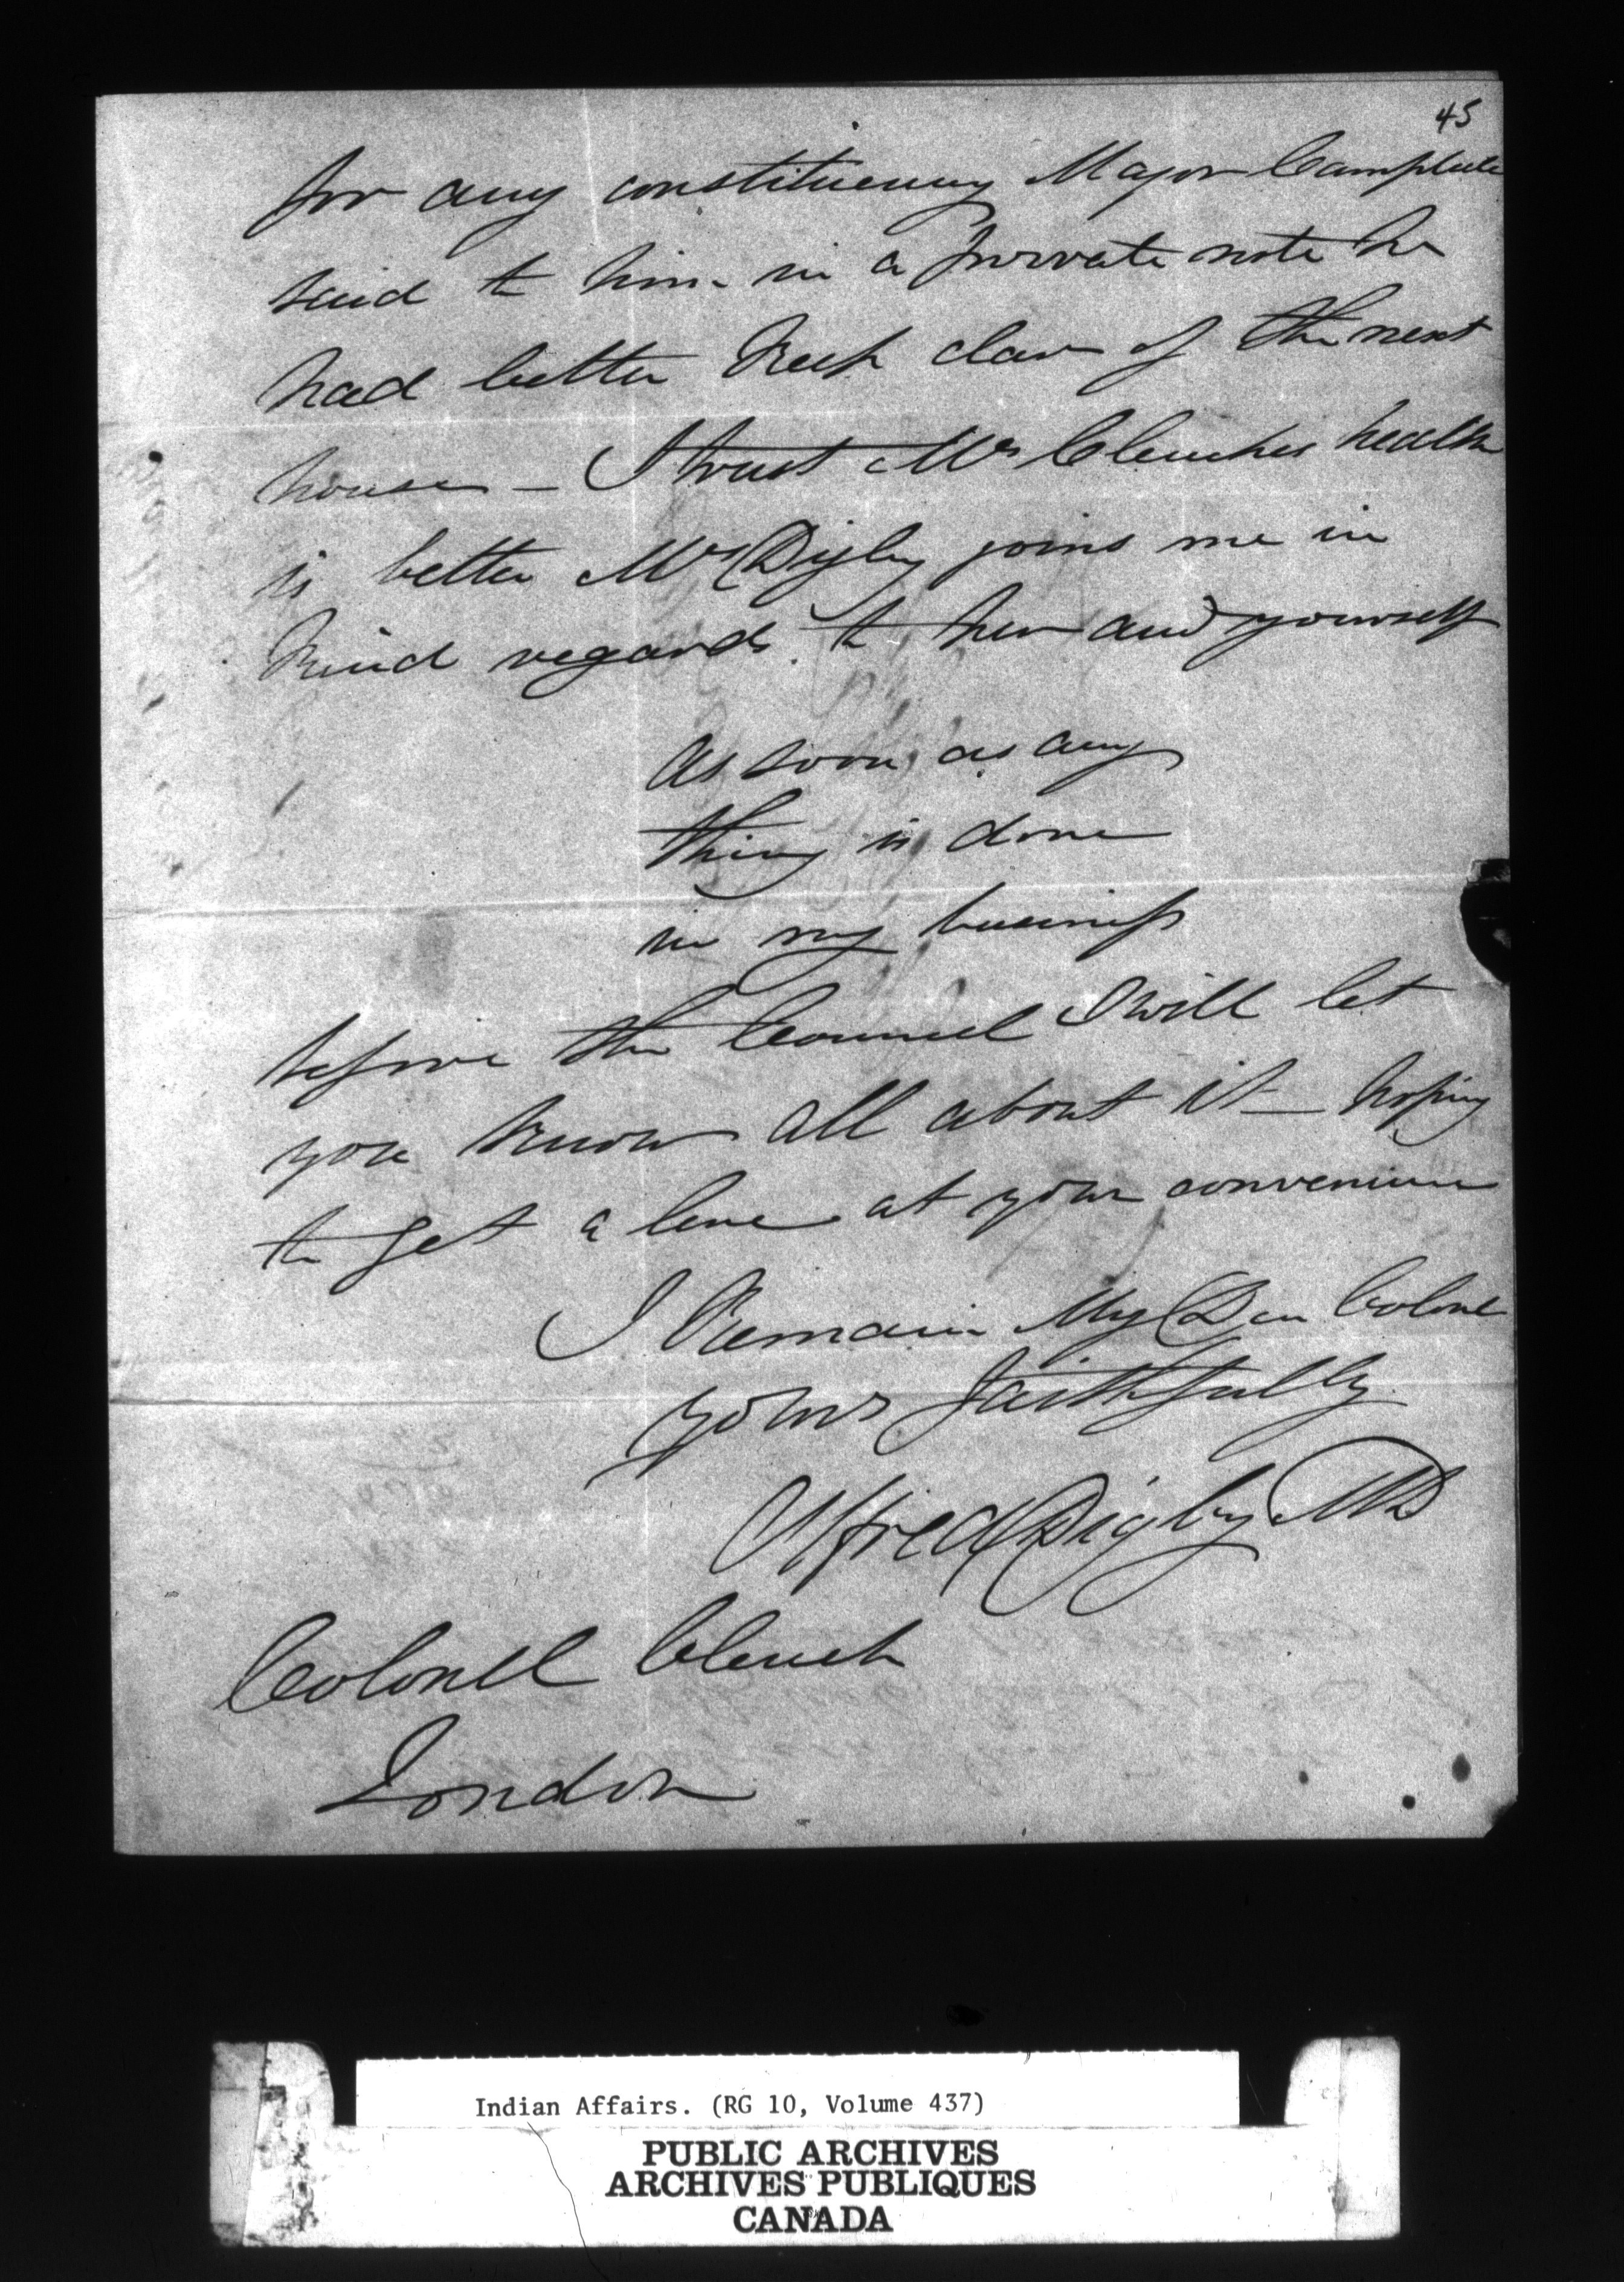 45
for any constituency Major Campbell
said to him in a private note he
had better keep clear of the next
house – I trust Mrs Clenches health
is better Mrs Digby joins me in
kind regards to her and yourself
as soon as any
thing is done
in my business
before the Council I will let
you know all about it – hoping
to get a line at your convenience
I Remain My Dear Colonel
yours faithfully
Alfred Digby MD
Colonel Clench
London
Indian Affairs. (RG 10, Volume 437)
PUBLIC ARCHIVES
ARCHIVES PUBLIQUES
CANADA